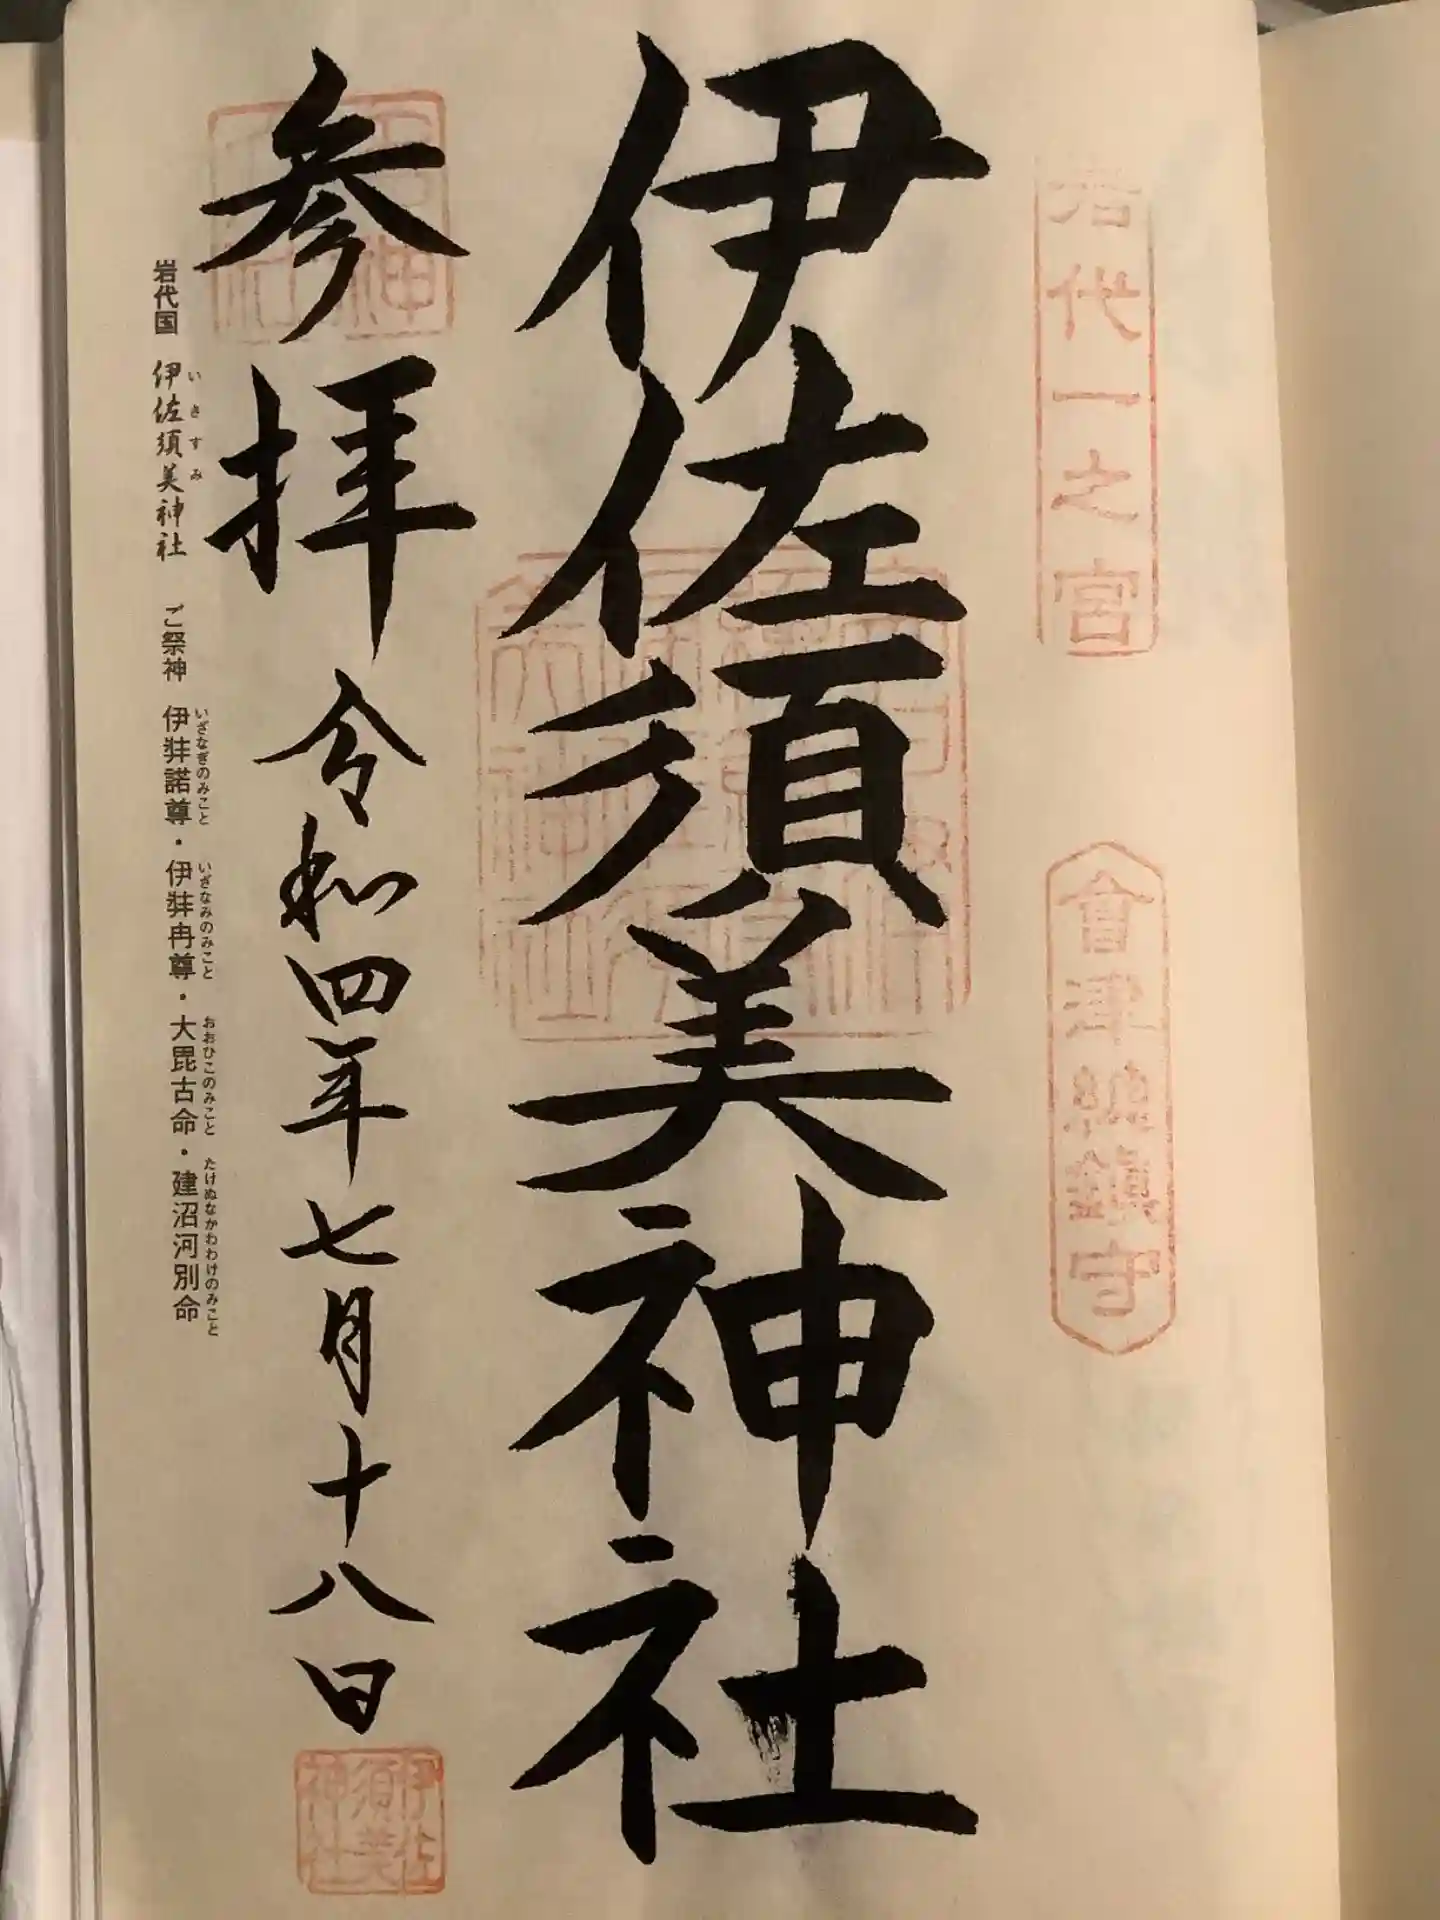 岩代一之宮
會津總鎮守
伊佐須美神社
参拝
令和四年七月十八日
伊佐須美神社
岩代国 伊佐須美神社 ご祭神 伊弉諾尊・伊弉冉尊・大毘古命・建沼河別命
いさすみ いざなぎのみこと いざなみのみこと おおひこのみこと たけぬなかわわけのみこと